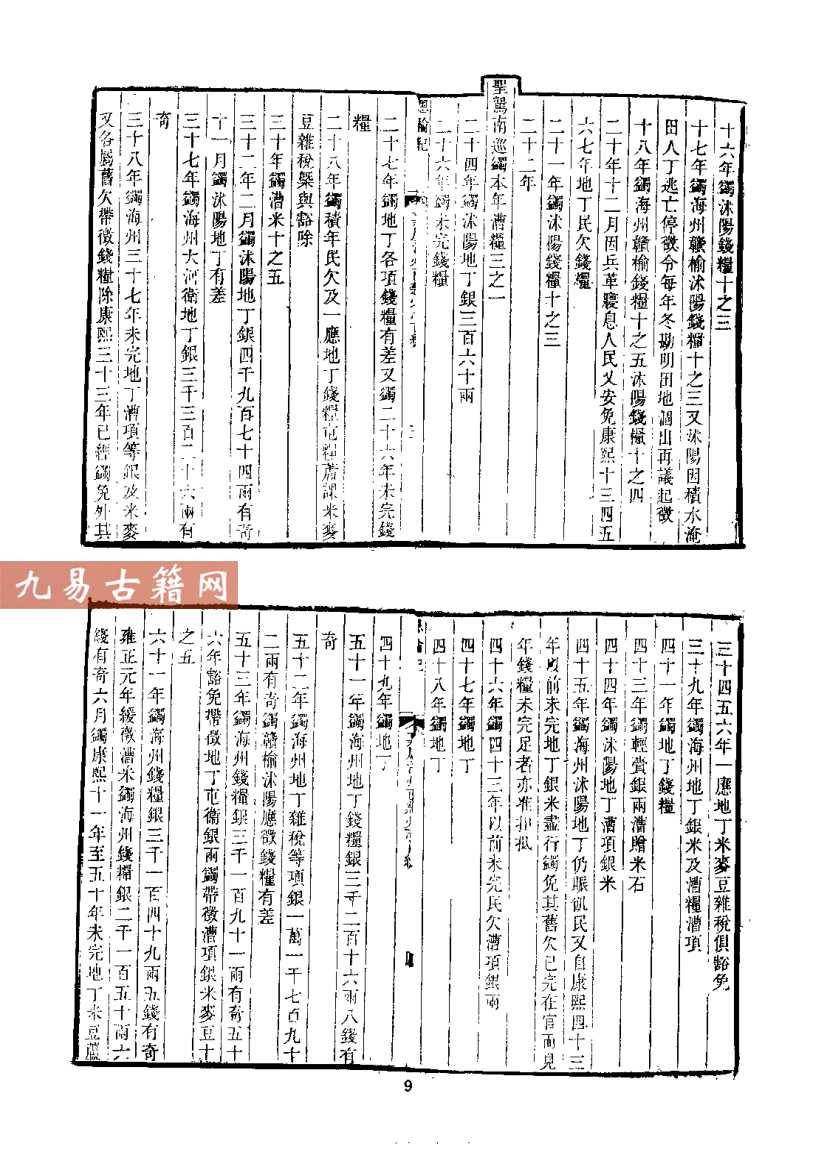 十六年蠲沭陽錢糧十之三
十七年蠲海州贛榆沭陽錢糧十之三又沭陽因積水淹
田人丁逃亡停徵令每年冬勘明田地涸出再議起徵
十八年蠲海州贛榆錢糧十之五沭陽錢糧十之四
二十年十二月因兵革寢息人民乂安免康熙十三四五
六七年地丁民欠錢糧
二十一年蠲沭陽錢糧十之三
二十二年
聖駕南巡蠲本年漕糧三之一
二十四年蠲沭陽地丁銀三百六十兩
二十六年蠲未完錢糧
恩綸紀
二十七年蠲地丁各項錢糧有差又蠲二十六年未完錢
糧
二十八年蠲積年民欠及一應地丁錢糧屯糧蘆課米麥
豆雜稅槩與豁除
三十年蠲漕米十之五
三十二年二月蠲沭陽地丁銀四千九百七十四兩有奇
十一月蠲沭陽地丁有差
三十七年蠲海州大河衛地丁銀三千三百二十六兩有
奇
三十八年蠲海州三十七年未完地丁漕項等銀及米麥
又各屬舊欠帶徵錢糧除康熙三十三年已經蠲免外其
三十四五六年一應地丁米麥豆雜稅俱豁免
三十九年蠲海州地丁銀米及漕糧漕項
四十一年蠲地丁錢糧
四十三年蠲輕賫銀兩漕贈米石
四十四年蠲沭陽地丁漕項銀米
四十五年蠲海州沭陽地丁仍賑飢民又自康熙四十三
年以前未完地丁銀米盡行蠲免其舊欠已完在官而見
年錢糧未完足者亦准扣抵
四十六年蠲四十三年以前未完民欠漕項銀兩
四十七年蠲地丁
四十八年蠲地丁
恩綸紀
四
四十九年蠲地丁
五十一年蠲海州地丁錢糧銀三千二百十六兩八錢有
奇
五十二年蠲海州地丁雜稅等項銀一萬一千七百九十
二兩有奇蠲贛榆沭陽應徵錢糧有差
五十三年蠲海州錢糧銀三千一百九十一兩有奇五十
六年豁免帶徵地丁屯衛銀兩蠲帶徵漕項銀米麥豆十
之五
六十一年蠲海州錢糧銀三千一百四十九兩五錢有奇
雍正元年緩徵漕米蠲海州錢糧銀二千一百五十兩六
錢有奇六月蠲康熙十一年至五十年未完地丁米豆蘆
九易古籍网
9